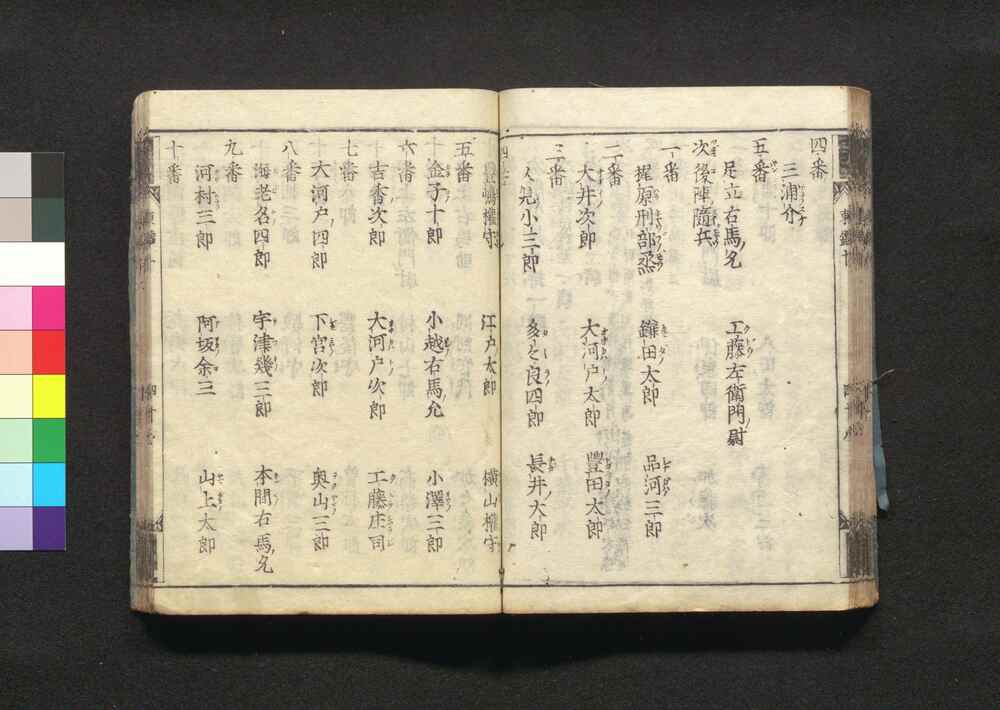 四番
三浦介
五番
足立右馬允　工藤左衛門尉
次後陣随兵
一番
梶原刑部丞　鎌田太郎　品河三郎
二番
大井次郎　大河戸太郎　豊田太郎
三番
人見小三郎　多々良四郎　長井太郎
四番
豊嶋権守　江戸太郎　横山権守
五番
金子十郎　小越右馬允　小澤三郎
六番
吉香次郎　大河戸次郎　工藤庄司
七番
大河戸四郎　下宮次郎　奥山三郎
八番
海老名四郎　宇津幾三郎　本間右馬允
九番
河村三郎　阿坂余三　山上太郎
十番